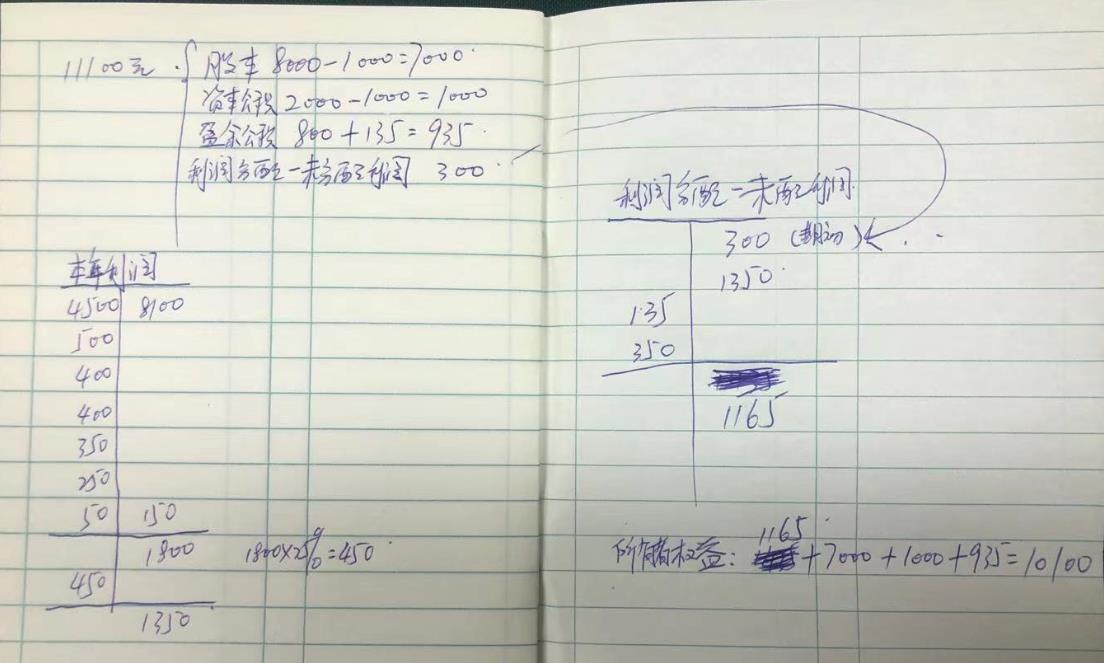 11100元 { 股本 8000-1000=7000
资本公积 2000-1000=1000
盈余公积 800+135=935
利润分配-未分配利润 300
本年利润
4500 8100
500
400
400
350
250
50 150
1800 1800×25%=450
450
1350
利润分配-未配利润
300 (期初)
1350
135
350
1165
1165
所有者权益: +7000+1000+935=10100